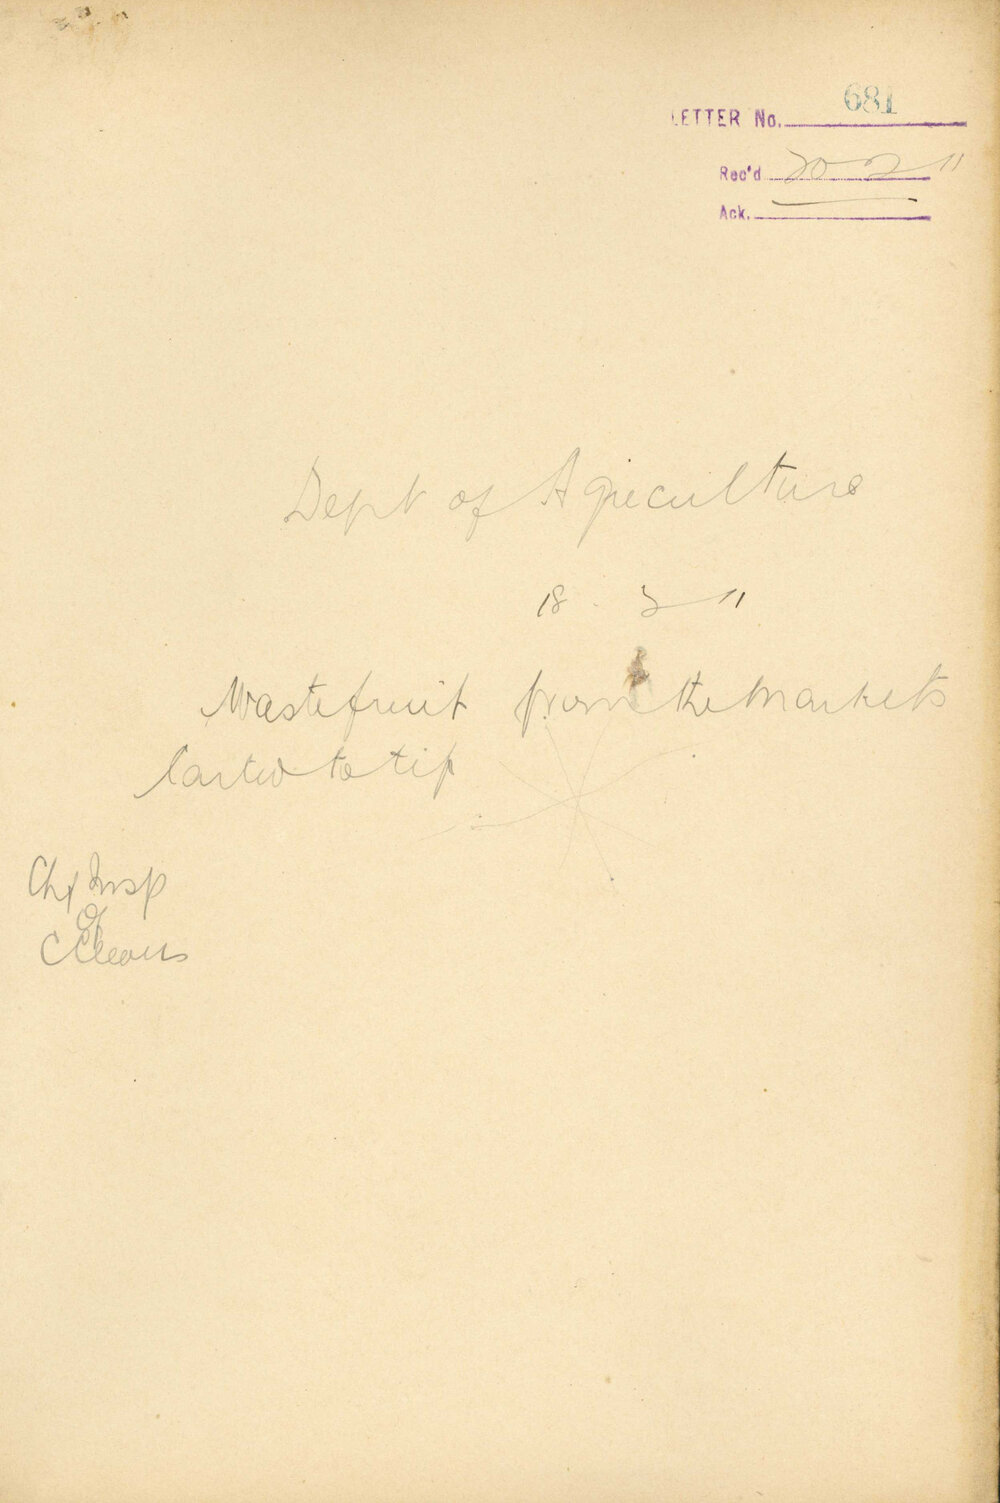 LETTER No. 681
Rec'd 20 2 11
Ack.
Dept of Agriculture
18 . 2 11
Waste fruit from the Markets
Carted to tip
Chf Insp
of
Cleans